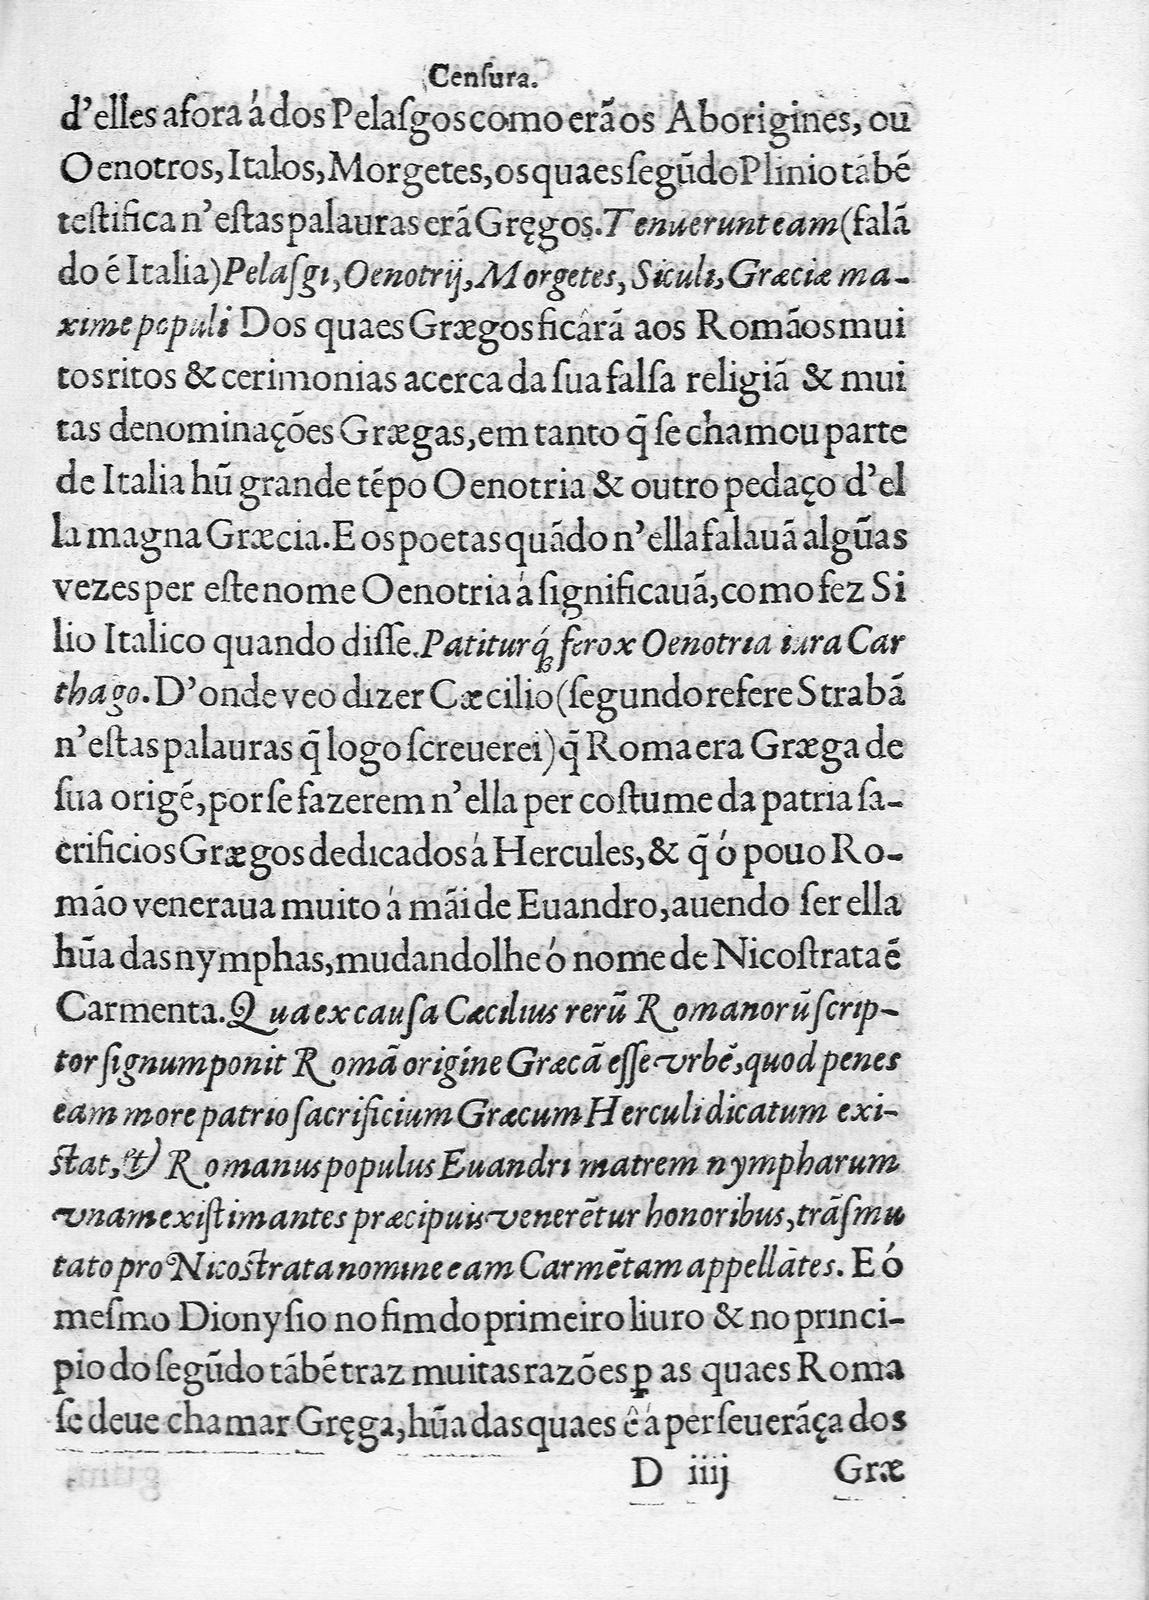 Cenſura.
d'elles afora á dos Pelaſgos como erã os Aborigines, ou
Oenotros, Italos, Morgetes, os quaes ſegũdo Plinio tãbẽ
teſtifica n'eſtas palauras erã Gręgos. Tenuerunt eam (falã
do ẽ Italia) Pelaſgi, Oenotrij, Morgetes, Siculi, Græciæ ma-
xime populi Dos quaes Grægos ficârã aos Romãos mui
tos ritos & cerimonias acerca da ſua falſa religiã & mui
tas denominações Grægas, em tanto q̃ ſe chamou parte
de Italia hũ grande tẽpo Oenotria & outro pedaço d'el
la magna Græcia. E os poetas quãdo n'ella falauã algũas
vezes per eſte nome Oenotria á ſignificauã, como fez Si
lio Italico quando diſſe. Patiturq́ꝫ ferox Oenotria iura Car
thago. D'onde veo dizer Cæcilio (ſegundo refere Strabã
n'eſtas palauras q̃ logo ſcreuerei) q̃ Roma era Græga de
ſua origẽ, por ſe fazerem n'ella per coſtume da patria ſa-
crificios Græegos dedicados á Hercules, & q̃ ó pouo Ro-
mão veneraua muito á mãi de Euandro, auendo ſer ella
hũa das nymphas, mudandolhe ó nome de Nicoſtrata ẽ
Carmenta. Qua ex cauſa Cæcilius rerũ Romanorũ ſcrip-
tor ſignum ponit Romã origine Græcã eſſe vrbẽ, quod penes
eam more patrio ſacrificium Græcum Herculi dicatum exi-
ſtat, & Romanus populus Euandri matrem nympharum
vnam exiſtimantes præcipuis venerẽtur honoribus, trãſmu
tato pro Nicoſtrata nomine eam Carmẽtam appellãtes. E ó
meſmo Dionyſio no fim do primeiro liuro & no princi-
pio do ſegũdo tãbẽ traz muitas razões ꝑ as quaes Roma
ſe deue chamar Gręga, hũa das quaes ê á perſeuerãça dos
D iiij Græ